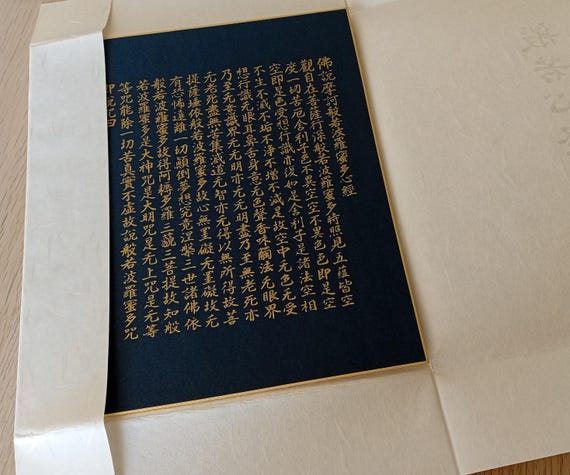 般若心
佛説摩訶般若波羅蜜多心經
觀自在菩薩行深般若波羅蜜多時照見五蘊皆空
度一切苦厄舍利子色不異空空不異色色即是空
空即是色受想行識亦復如是舍利子是諸法空相
不生不滅不垢不淨不增不減是故空中无色无受
想行識无眼耳鼻舌身意无色聲香味觸法无眼界
乃至无意識界无无明亦无无明盡乃至無老死亦
无老死盡无苦集滅道无智亦无得以無所得故菩
提薩埵依般若波羅蜜多故心無罣礙无罣礙故无
有恐怖遠離一切顛倒夢想究竟涅槃三世諸佛依
般若波羅蜜多故得阿耨多羅三藐三菩提故知般
若波羅蜜多是大神咒是大明咒是无上咒是无等
等咒能除一切苦真實不虚故説般若波羅蜜多咒
即説咒曰